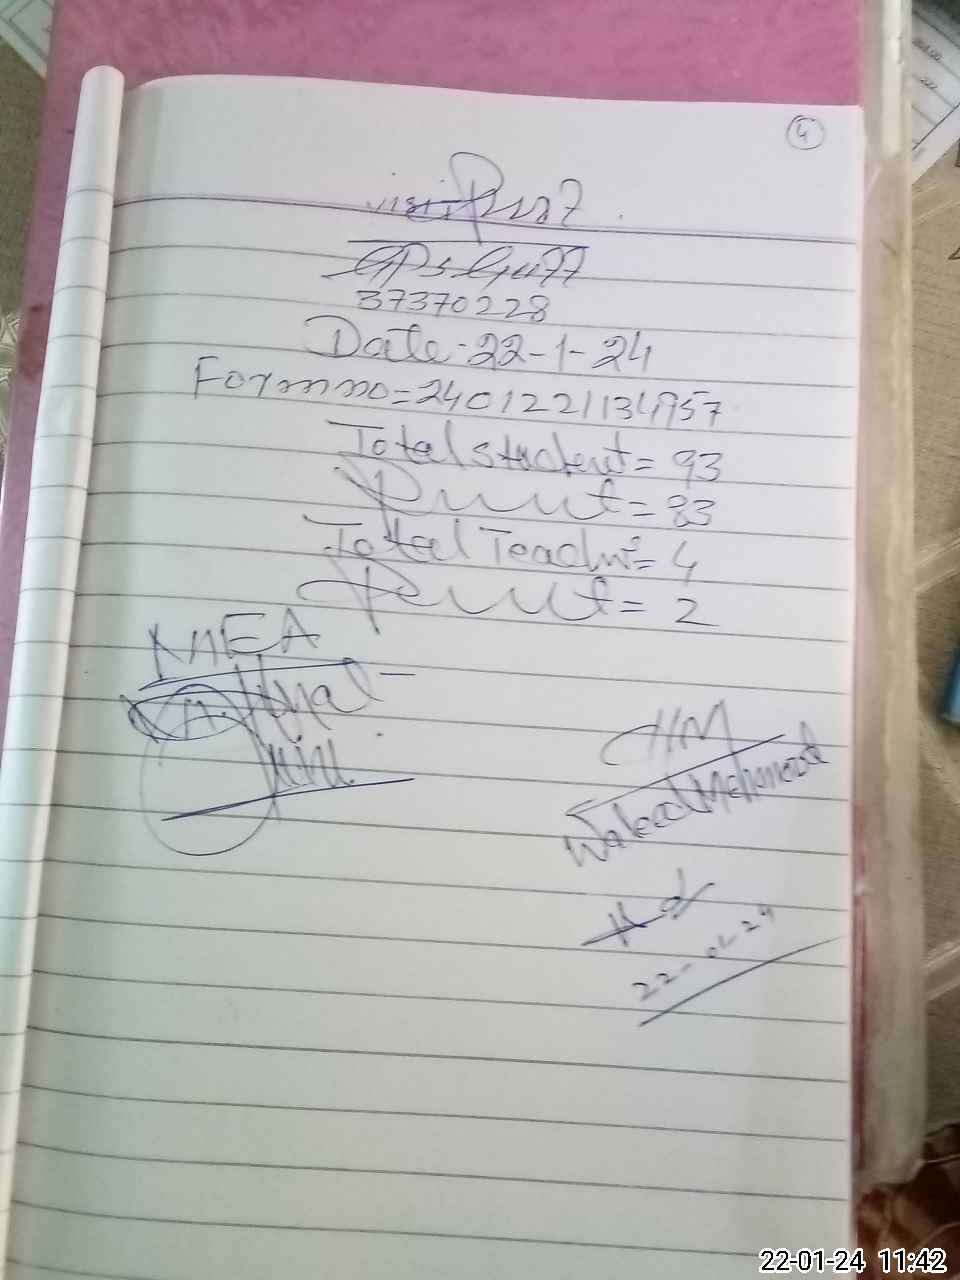 4
visit
GPS
37370228
Date - 22-1-24
Form no = 2401221134957
Total student = 93
Present = 83
Total Teacher = 4
Present = 2
MEA
HM
Waleed Mehmood
22-01-24
22-01-24 11:42